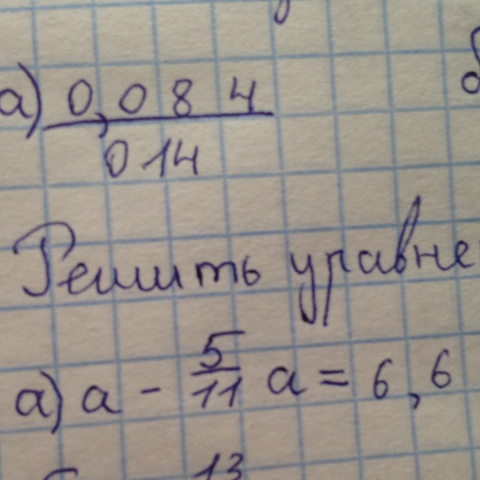 а) 0,084
014
Решить уравне
а) а - 5/11 а = 6,6
13